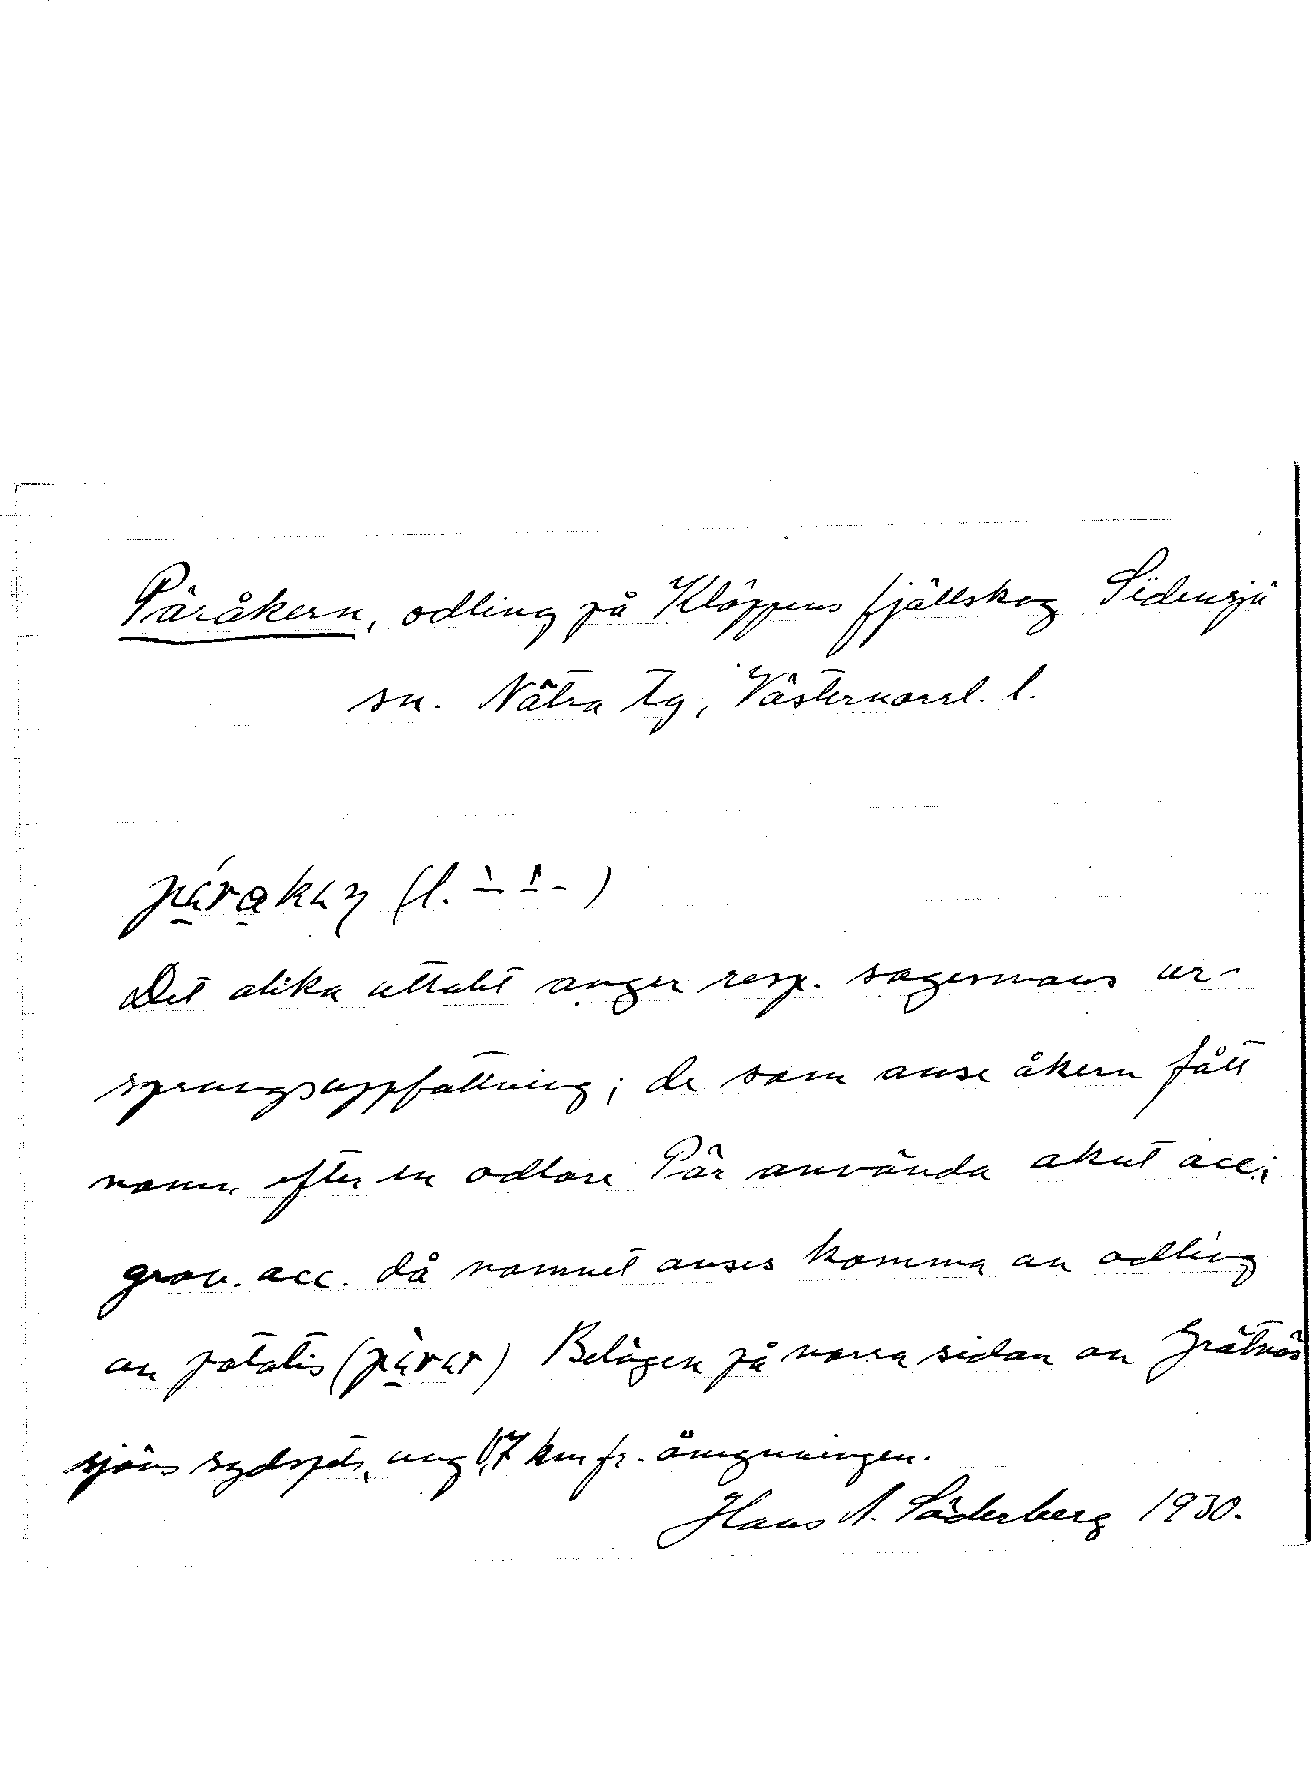 Päråkern, odling på Klöppens fjällskog Sidensjö
sn. Nätra tg, Västernorrl. l.
Det olika uttalet anger resp. sagesmans ur-
sprungsuppfattning; de som anse åkern fått
namn efter en odlare Pär använda akut acc.;
grav. acc. då namnet anses komma av odling
av potatis (pärar) Belägen på norra sidan av Grätnäs
sjöns sydspets, ung 1,7 km fr. åmynningen.
Hans A. Söderberg 1930.